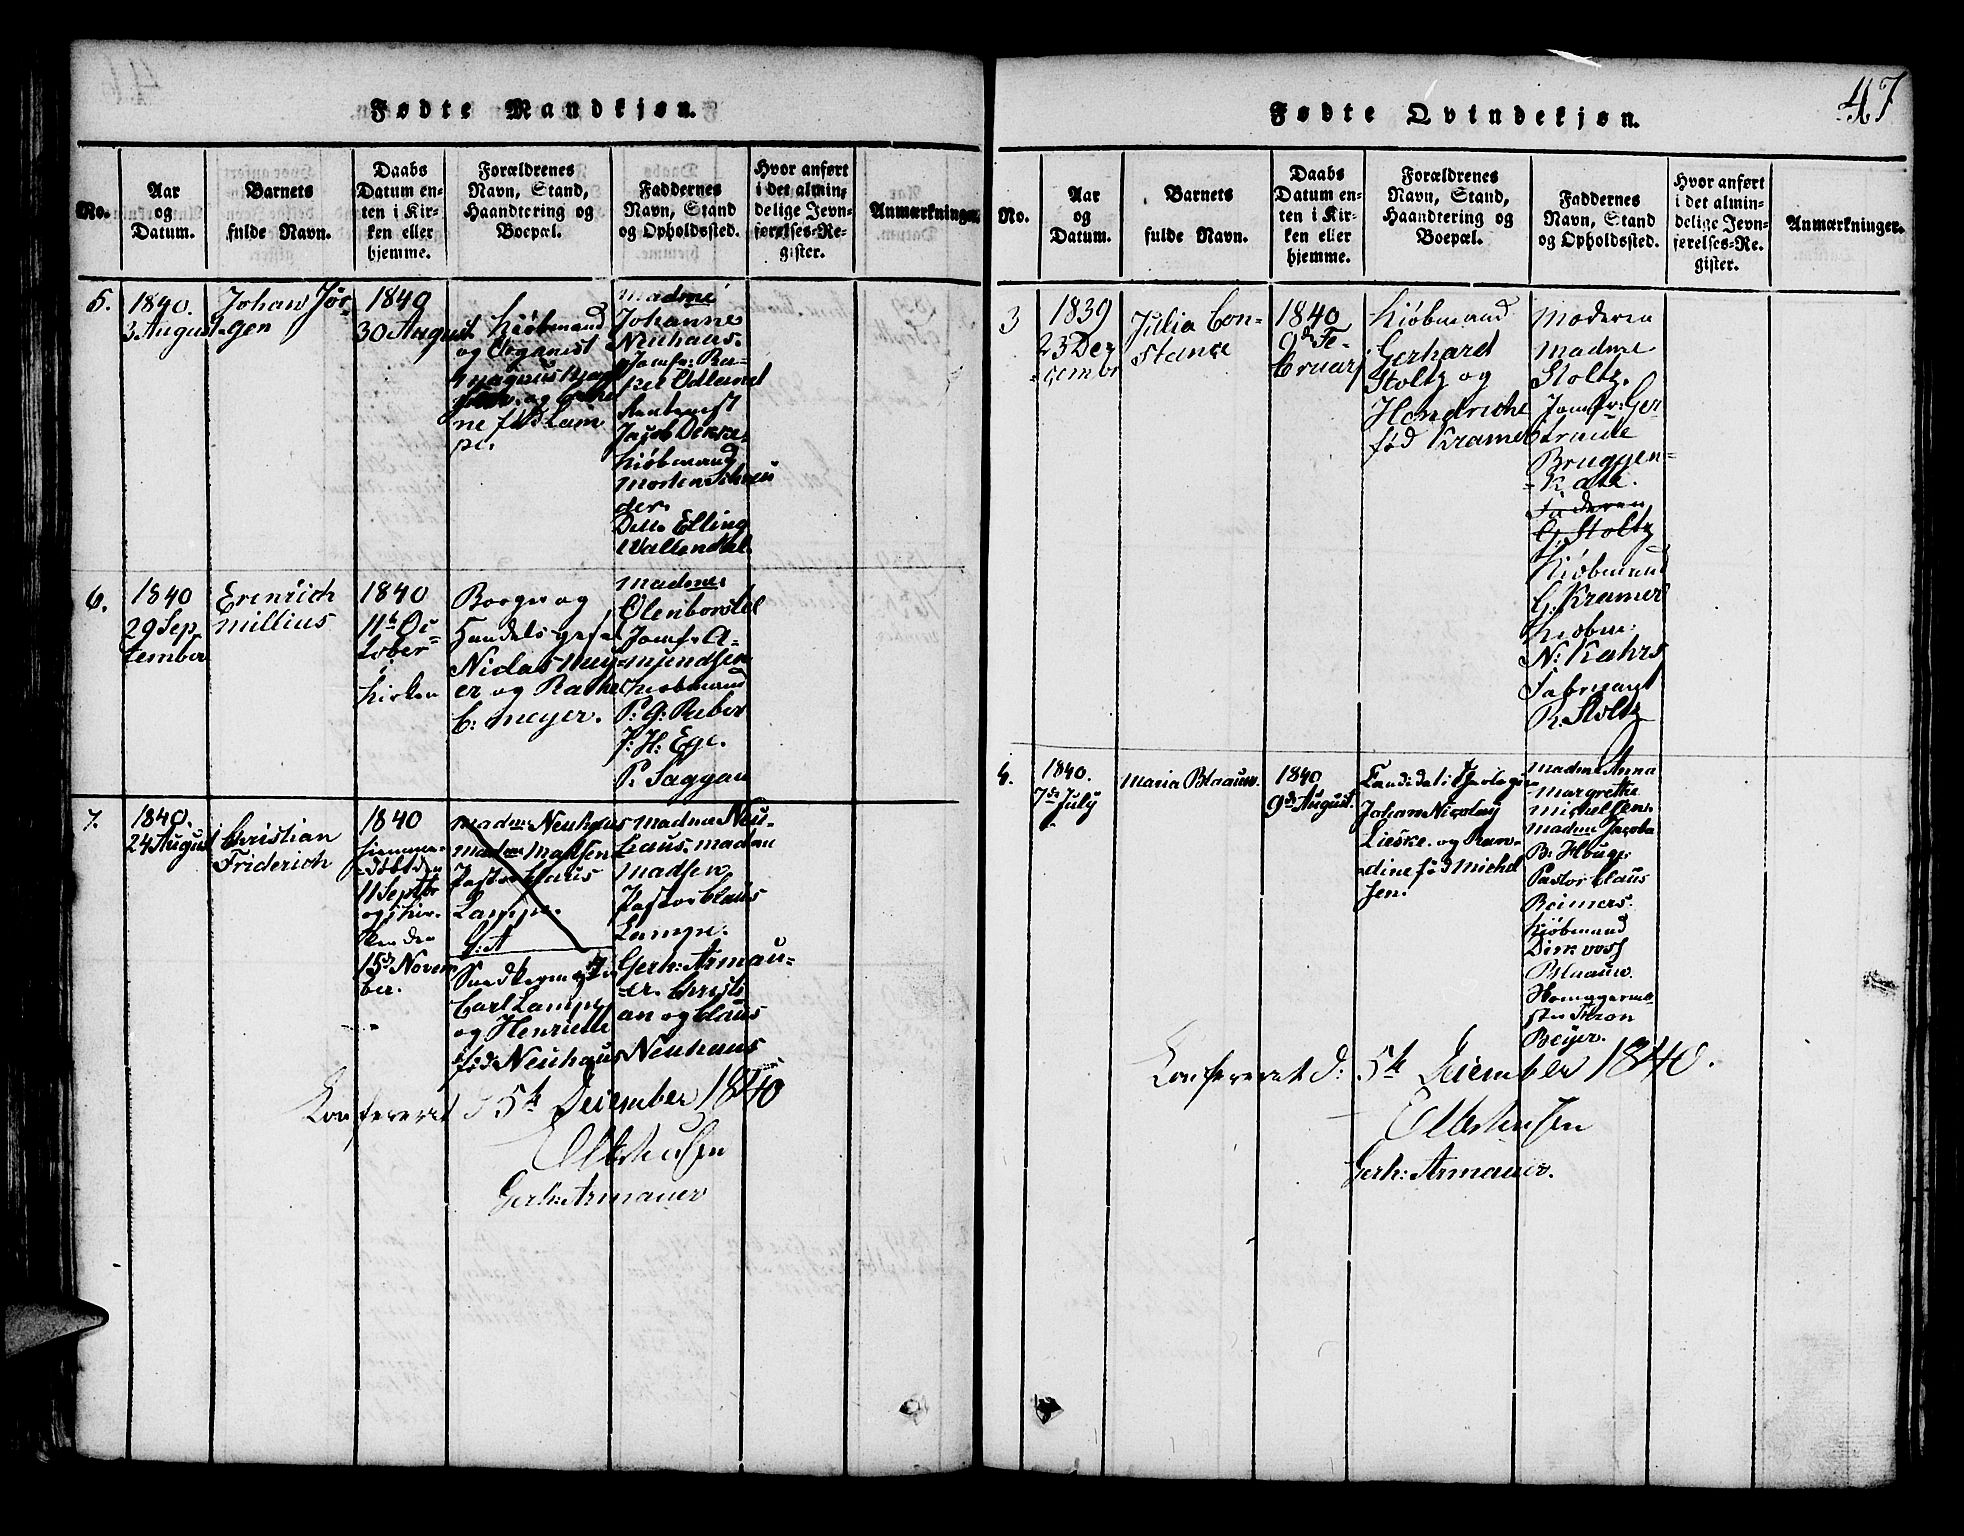 47
Fødte Mandkjøn.
No.
Aar
og
Datum.
Barnets
fulde Navn.
Daabs
Datum en-
ten i Kir-
ken eller
hjemme.
Forældrenes
Navn, Stand,
Haandtering og
Boepæl.
Faddernes
Navn, Stand
og Opholdssted.
Hvor anført
i det almin-
delige Jevn-
førelses-Re-
gister.
Anmærkninger.
5.
1840.
3 August
Johan Jør-
gen
1840
30 August
Kiøbmand
og Organist
og Cathe
ne fød Lam
pe.
Madme
Johanne
Neuhaus.
Jomfr: Ra-
kel Odlund
Jacob Dekke.
Kiøbmand
Morten Schrøu
der.
Detto Elling
Wallendal.
6.
1840
29 Sep
tember
Erenrich
Millius
1840
11te Oc
tober
i
Kirken
Borger og
Handels
Niclas Mey
er og Rachel
C: Meyer.
Madme
Olenborstel
Jomfr A-
mundsen
Kiøbmand
P: G: Reber
J: H: Ege.
P: Saggau
7.
1840.
24 August
Christian
Friderich
1840
hiemme-
døbt den
11 Septbr
og i Kir-
ken den
15de Novem
ber.
Madme Neuhaus
Madme Madsen
Pastor Claus
Lampe.
G: A
Carl Lampe
og Henriette
fød Neuhaus
Madme Neu-
haus. Madme
Madsen
Pastor Claus
Lampe.
Gerh: Armau-
er. Christi
an og Claus
Neuhaus
Konfereret d 5te December 1840
Gerh: Armauer
Fødte Qvindekjøn.
No.
Aar
og
Datum.
Barnets
fulde Navn.
Daabs
Datum en-
ten i Kir-
ken eller
hjemme.
Forældrenes
Navn, Stand,
Haandtering og
Boepæl.
Faddernes
Navn, Stand
og Opholdssted.
Hvor anført
i det almin-
delige Jevn-
førelses-Re-
gister.
Anmærkninger.
3
1839
23 De-
cembr
Julia Con-
stance
1840
9de Fe-
bruarj
Kiøbmand
Gerhard
Stoltz og
Hendriche
fød Kramer
Moderen
Madme
Stoltz.
Jomfr: Ger
traude
Bruggen-
kate.
Faderen
G. Stoltz
Kiøbmand
G: Kramer
Kiøbm:
N: Kahrs
Fabricant
R: Stoltz
4.
1840.
7de July
Maria Blaauw.
1840
9de August.
Candidat i Theologie
Johan Nicolay
Lieske. og Ran-
dine fød Michel
sen.
Madme Anna
Margrethe
Michelsen.
Madme Jacoba
Pastor Claus
Reimers.
Kiøbmand
Dirk vos
Blaauw.
ster Fron
Beyer.
Konfereret d: 5te December 1840.
Gerh: Armauer.